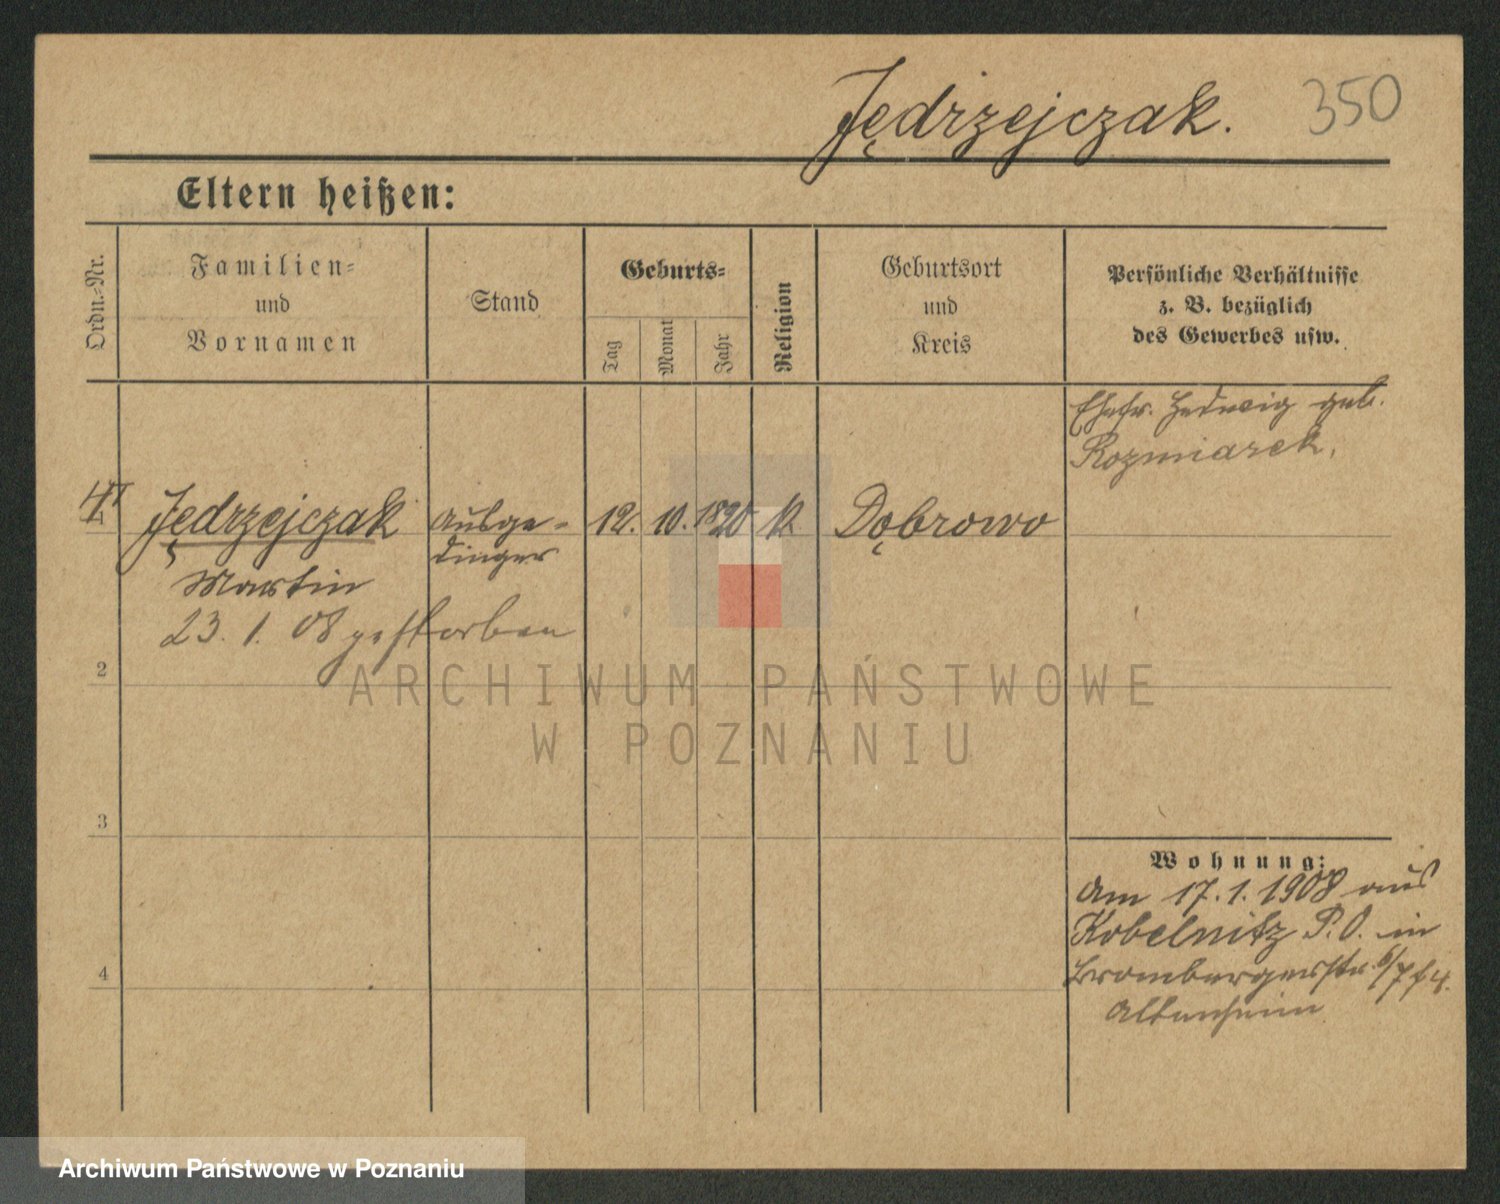 Jędrzejczak. 350
Eltern heißen:
Ordn.-Nr.
Familien-
und
Vornamen
Stand
Geburts-
Tag
Monat
Jahr
Religion
Geburtsort
und
Kreis
Persönliche Verhältnisse
z. B. bezüglich
des Gewerbes usw.
Ehefr. Hedwig geb.
Rozmiarek.
1 Jędrzejczak Ausge- 12. 10. 1820 k. Dąbrowo
Martin dinger
23. 1. 08 gestorben
2
ARCHIWUM PAŃSTWOWE
W POZNANIU
3
Wohnung:
Am 17.1.1908 aus
Kobelnitz P. O. in
Brombergerstr. 6/7
Altenheim
4
Archiwum Państwowe w Poznaniu